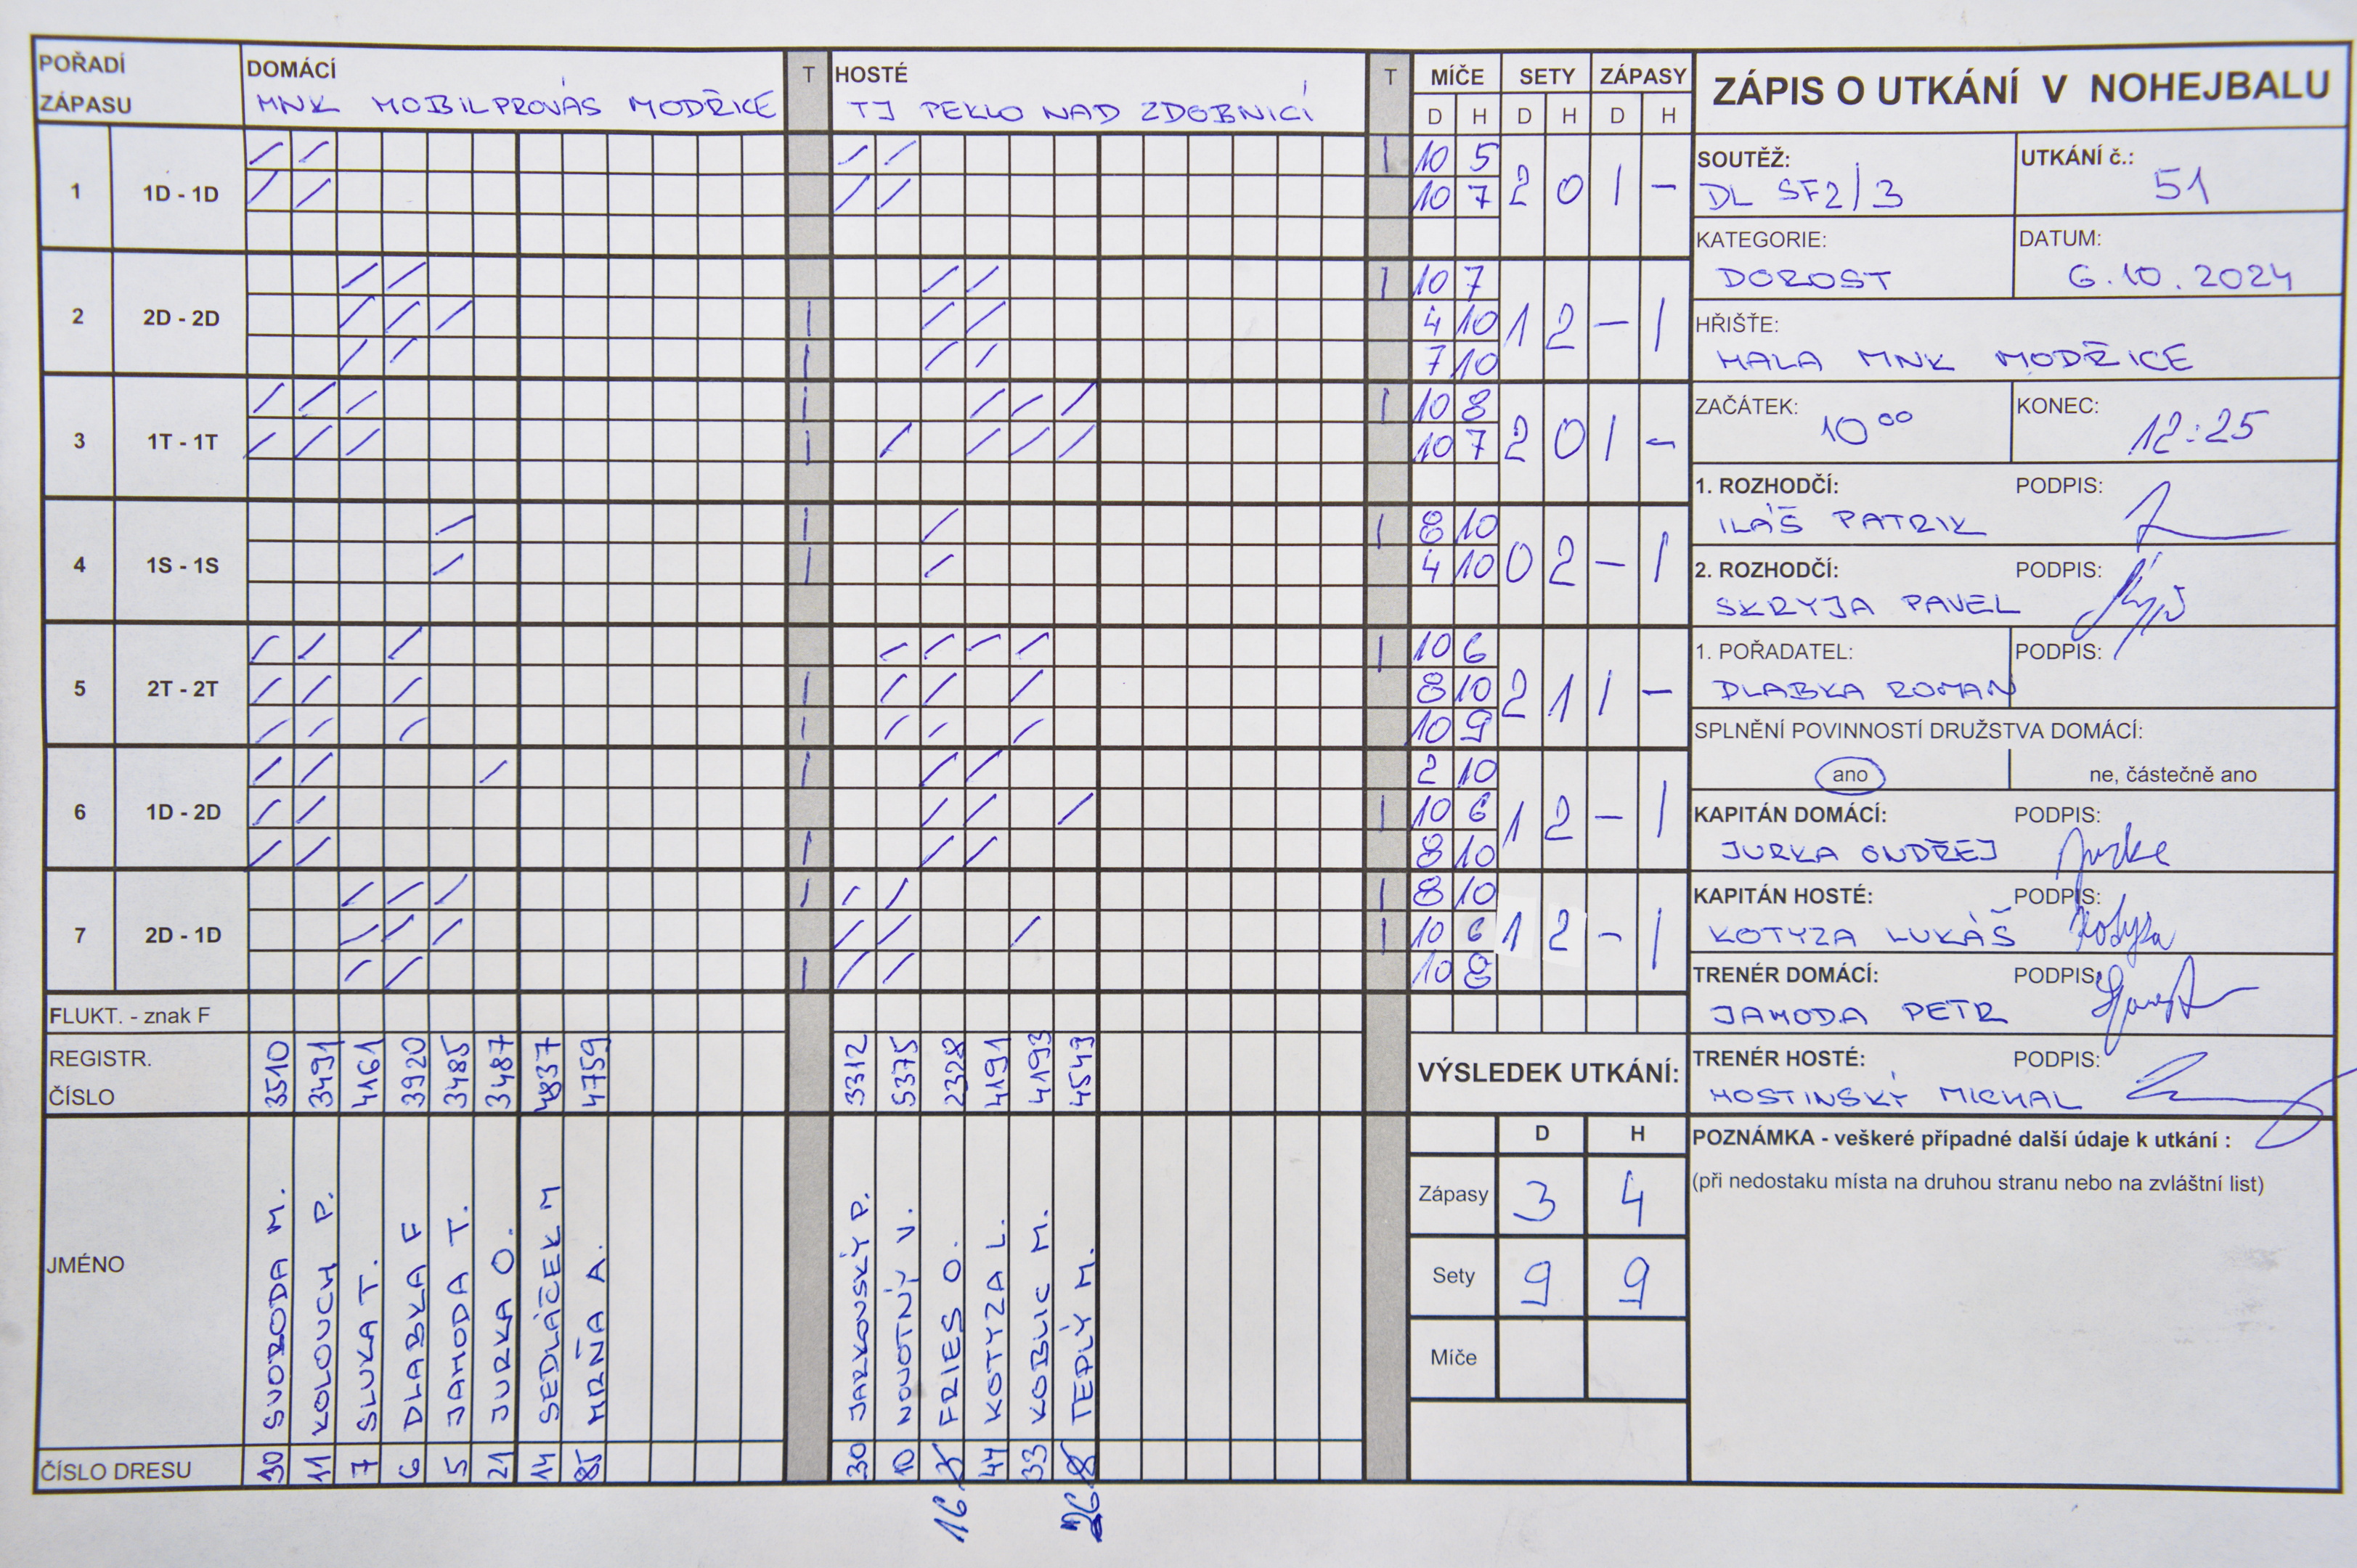 POŘADÍ ZÁPASU
DOMÁCÍ
MNK MOBILPROVÁS MODŘICE
T
HOSTÉ
TJ PEKLO NAD ZDOBNICÍ
T
MÍČE SETY ZÁPASY
D H D H D H
1 1D - 1D
10 5
10 7
2 0 1 -
2 2D - 2D
10 7
4 10
7 10
1 2 - 1
3 1T - 1T
10 8
10 7
2 0 1 -
4 1S - 1S
8 10
4 10
0 2 - 1
5 2T - 2T
10 6
8 10
10 9
2 1 1 -
6 1D - 2D
2 10
10 6
8 10
1 2 - 1
7 2D - 1D
8 10
10 6
10 8
1 2 - 1
FLUKT. - znak F
REGISTR. ČÍSLO
3510 3491 4161 3920 3485 3487 4837 4759
3312 5375 2328 4191 4193 4549
JMÉNO
SVOBODA M.
KOLOUCH P.
SLUKA T.
DLABKA F
JAHODA T.
JURKA O.
SEDLÁČEK M
HRŇA A.
JARKOVSKÝ P.
NOVOTNÝ V.
FRIES O.
KOTYZA L.
KOBLIC M.
TEPLÝ M.
ČÍSLO DRESU
30 11 7 6 5 21 14 85
30 10 16 44 33 26
VÝSLEDEK UTKÁNÍ:
D H
Zápasy 3 4
Sety 9 9
Míče
ZÁPIS O UTKÁNÍ V NOHEJBALU
SOUTĚŽ:
DL SF2/3
UTKÁNÍ č.:
51
KATEGORIE:
DOROST
DATUM:
6.10.2024
HŘIŠTĚ:
HALA MNK MODŘICE
ZAČÁTEK:
10 00
KONEC:
12:25
1. ROZHODČÍ: PODPIS:
ILÁŠ PATRIK
2. ROZHODČÍ: PODPIS:
SKRYJA PAVEL
1. POŘADATEL: PODPIS:
DLABKA ROMAN
SPLNĚNÍ POVINNOSTÍ DRUŽSTVA DOMÁCÍ:
ano ne, částečně ano
KAPITÁN DOMÁCÍ: PODPIS:
JURKA ONDŘEJ Jurka
KAPITÁN HOSTÉ: PODPIS:
KOTYZA LUKÁŠ Kotyza
TRENÉR DOMÁCÍ: PODPIS:
JAHODA PETR
TRENÉR HOSTÉ: PODPIS:
HOSTINSKÝ MICHAL
POZNÁMKA - veškeré případné další údaje k utkání :
(při nedostaku místa na druhou stranu nebo na zvláštní list)